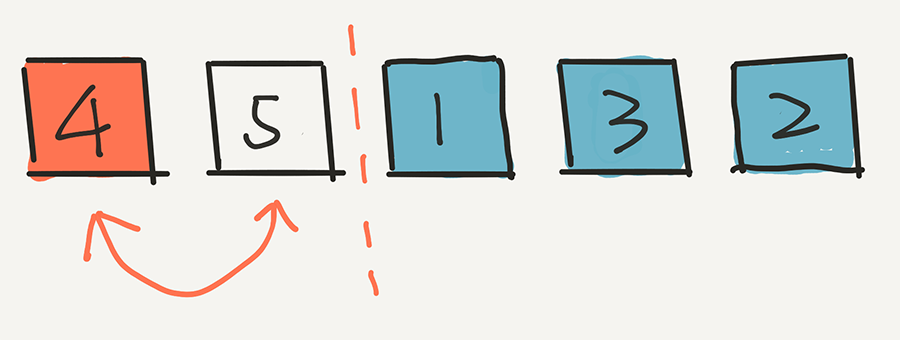 4 5 1 3 2